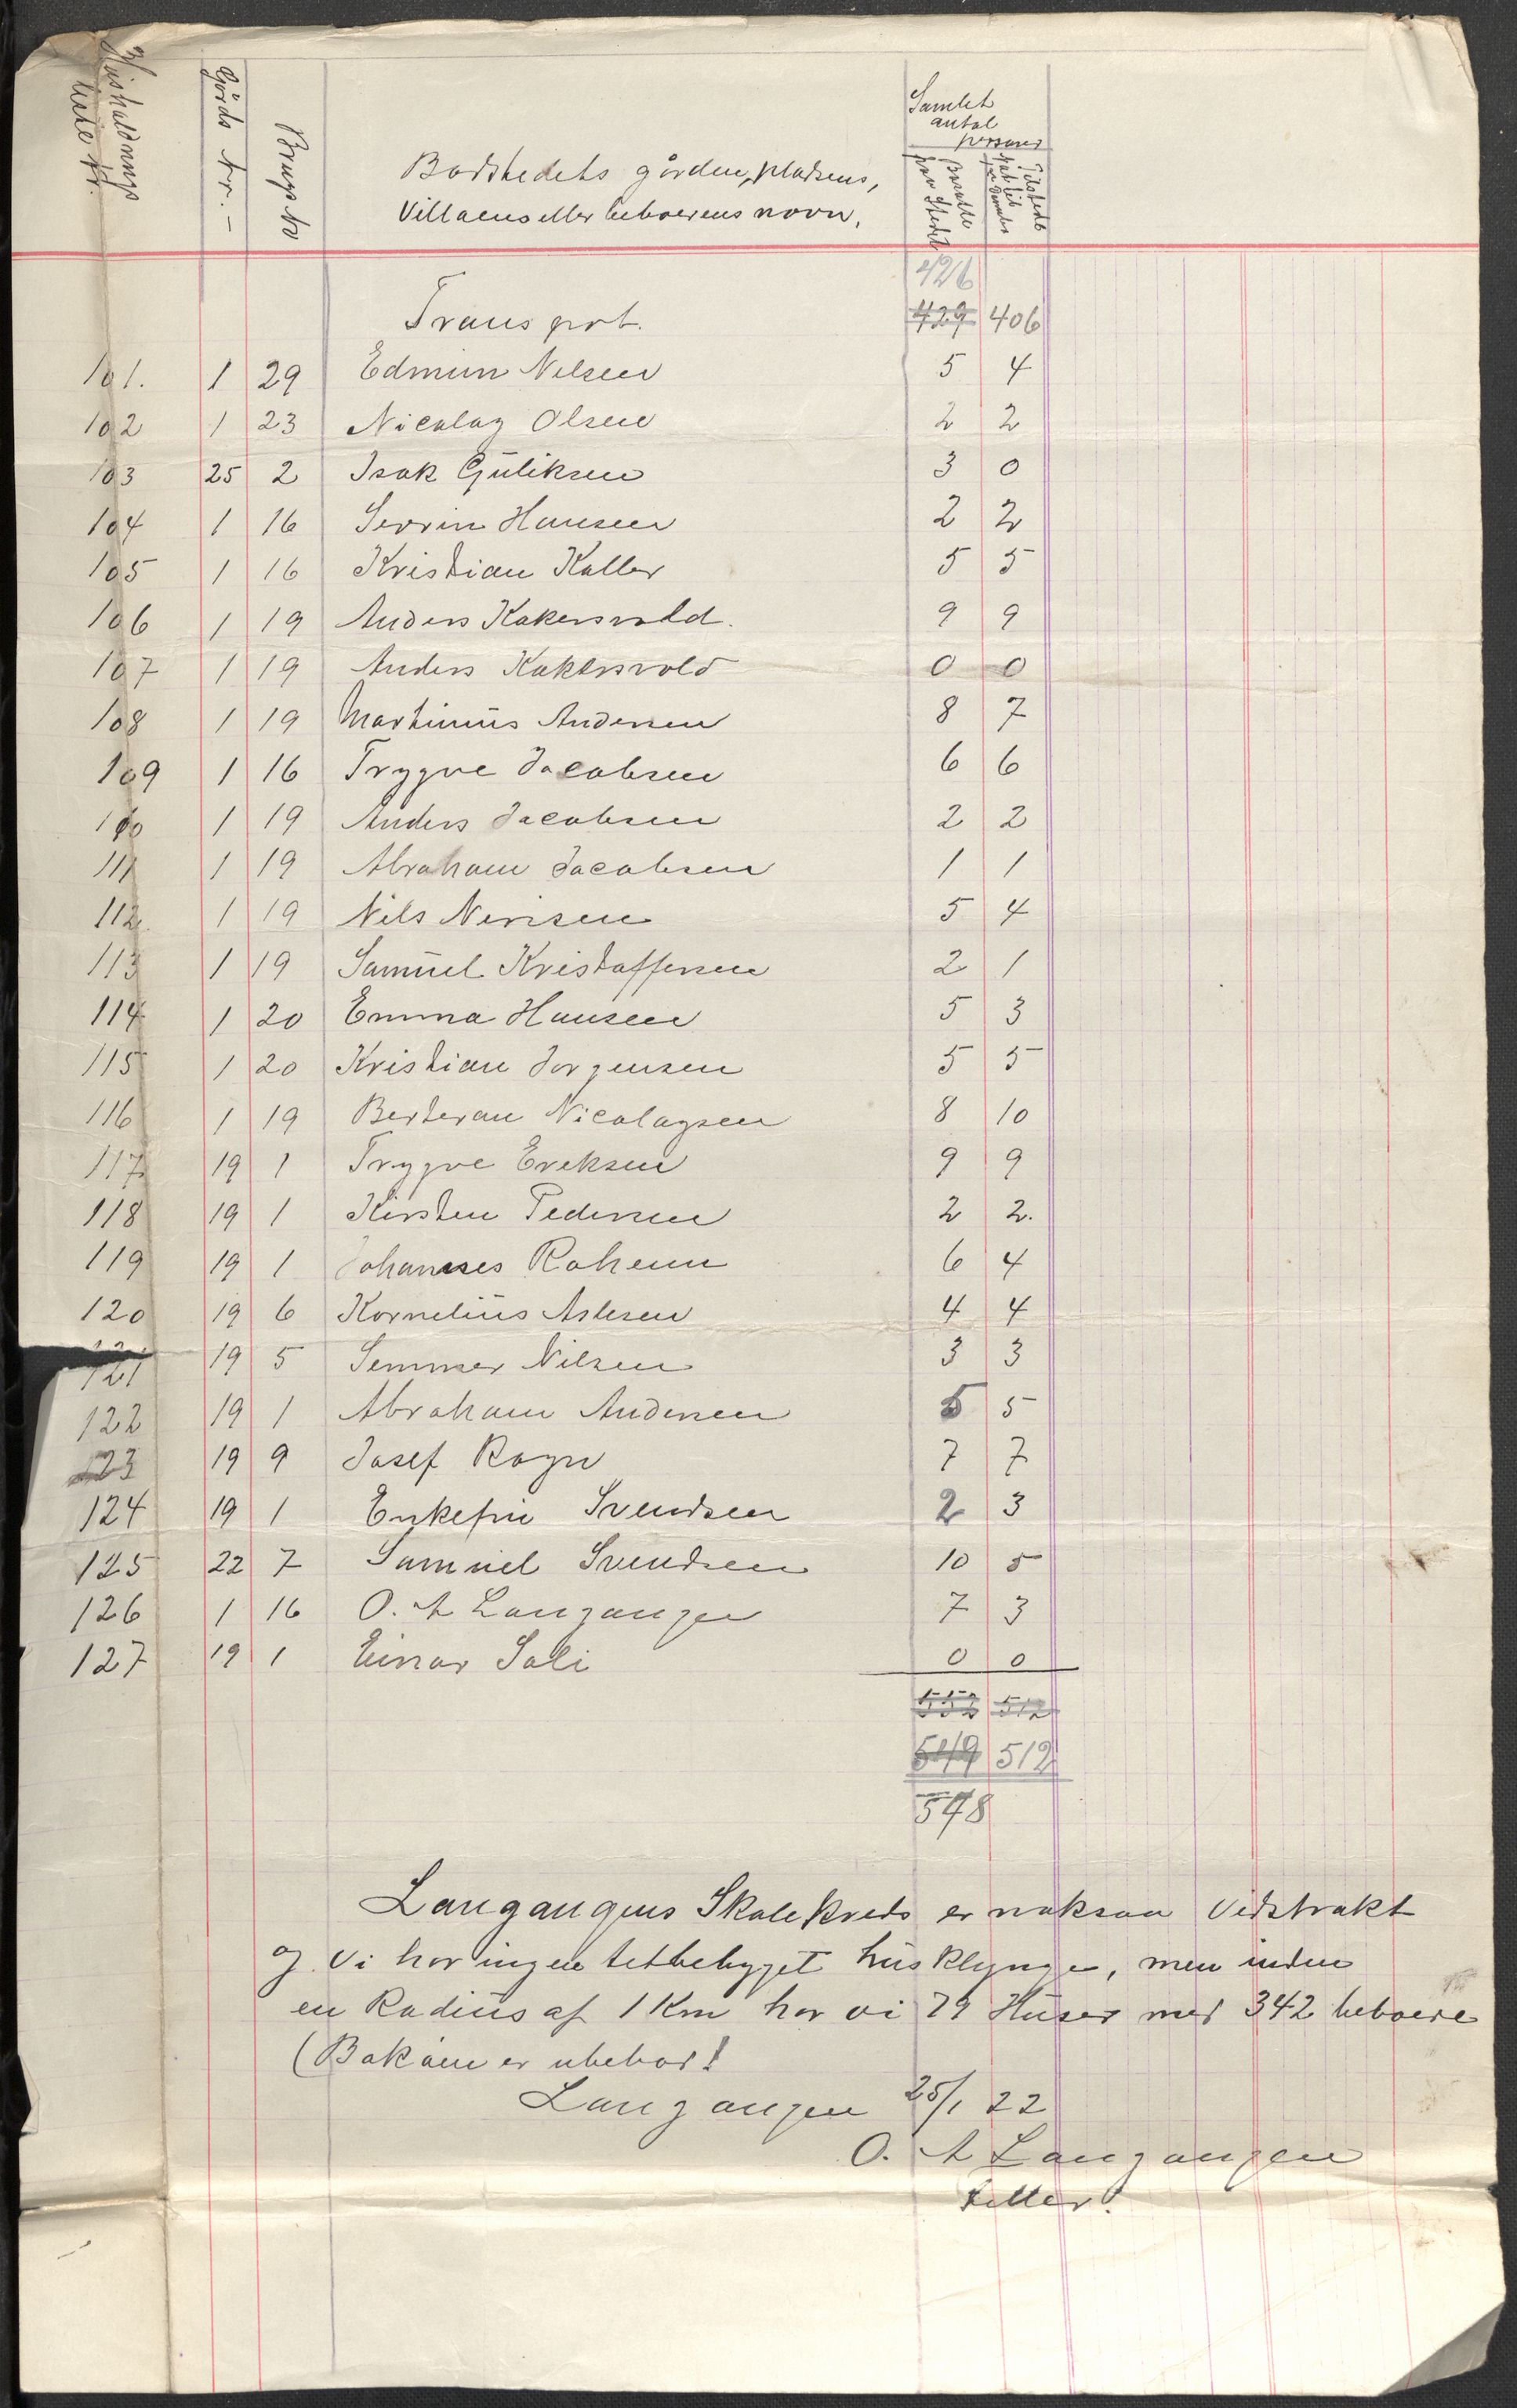 Husholdnings
liste Nr.
Gårds Nr.
Brugs Nr
Bostedets gården, pladsens,
Villaens eller beboerens navn.
Samlet
antal
personer
Bosatte
paa Stedet
Tilstede
426
Transport. 429 406
101. 1 29 Edmun Nelsen 5 4
102 1 23 Nicolay Olsen 2 2
103 25 2 Isak Guliksen 3 0
104 1 16 Serrin Hansen 2 2
105 1 16 Kristian Kaller 5 5
106 1 19 Anders Kokersvold. 9 9
107 1 19 Anders Kokersvold 0 0
108 1 19 Martinius Andersen 8 7
109 1 16 Trygve Jacobsen 6 6
110 1 19 Anders Jacobsen 2 2
111 1 19 Abraham Jacobsen 1 1
112. 1 19 Nils Nirisen 5 4
113 1 19 Samuel Kristoffersen 2 1
114 1 20 Emma Hansen 5 3
115 1 20 Kristian Jorgensen 5 5
116 1 19 Berteran Nicolaysen 8 10
117 19 1 Trygve Ereksen 9 9
118 19 1 Kirsten Pedersen 2 2.
119 19 1 Johannes Rohenn 6 4
120 19 6 Kornelius Aslesen 4 4
121 19 5 Semmer Nilsen 3 3
122 19 1 Abraham Andersen 5 5
123 19 9 Josef Rogn 7 7
124 19 1 Enkefru Svendsen 2 3
125 22 7 Samuel Svendsen 10 5
126 1 16 O. A Langangen 7 3
127 19 1 Einar Sali 0 0
552 512
549 512
548
Langangens Skolekreds er noksaa vidstrakt
og vi har ingen tetbebygget husklynge, men inden
en Radius af 1 Km har vi 79 Huser med 342 beboere
(Bakåen er ubebod!
Langangen 25/1 22
O. A Langangen
teller.